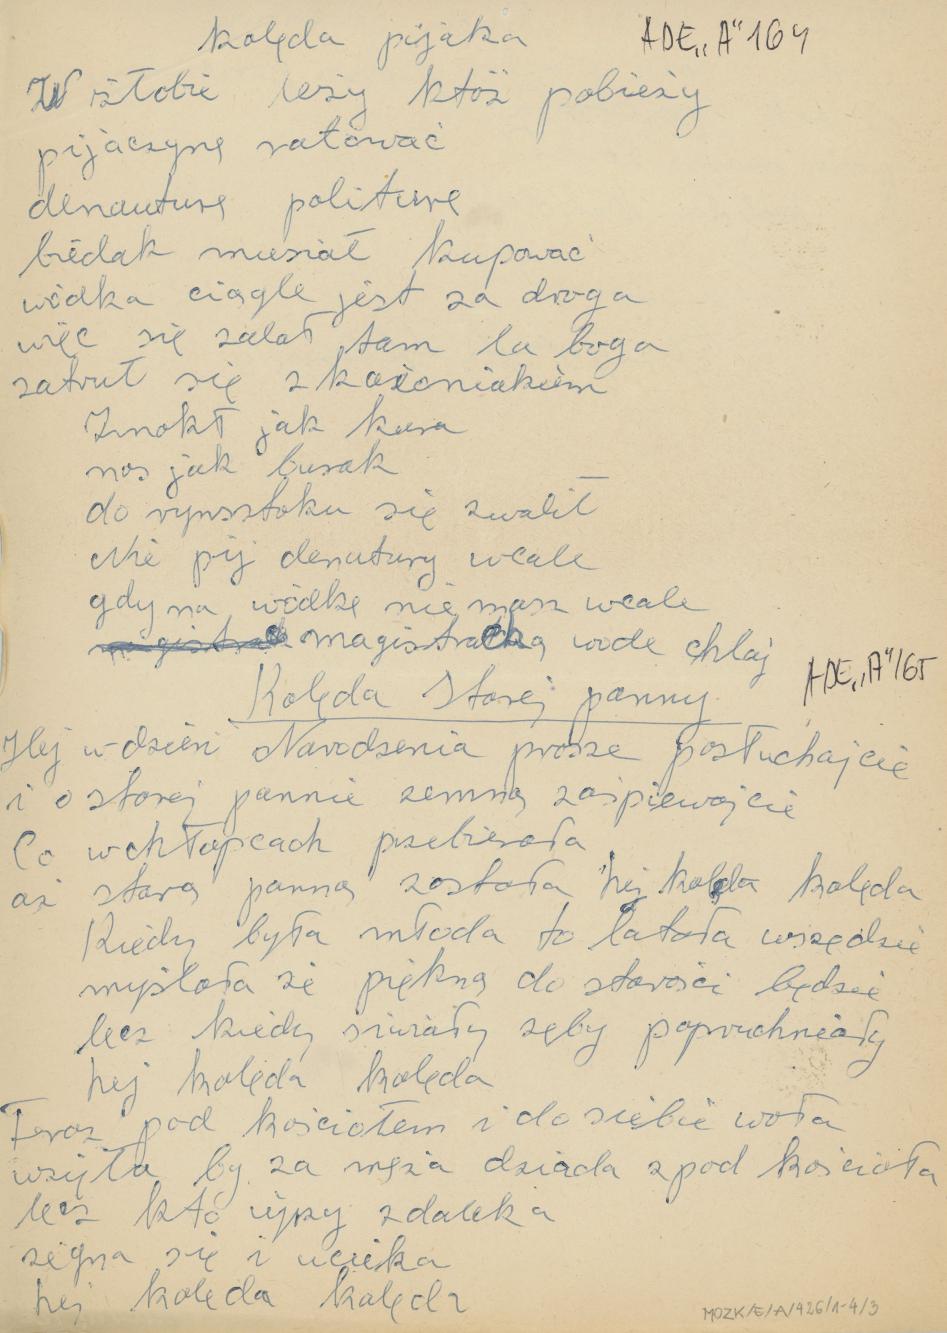 kolęda pijaka
ADE„A"164
W żłobie leży któż pobieży
pijaczynę ratować
denauturę politurę
biedak musiał kupować
wódka ciągle jest za droga
więc się zalał tam la boga
zatruł się skażoniakiem
Zmokł jak kura
nos jak burak
do rynsztoku się zwalił
Nie pij denatury wcale
gdy na wódkę nie masz wcale
magistracką wode chlaj
ADE„A"165
Kolęda Starej panny
Hej w dzień Narodzenia prosze posłuchajcie
i o starej pannie zemną zaśpiewajcie
Co wchłopcach przebierała
aż starą panną została hej kolęda kolęda
Kiedy była młoda to latała wszędzie
myślała że piękną do starości będzie
lecz kiedy siwiały zęby popruchniały
hej kolęda kolęda
Teraz pod kościołem i do siebie woła
wzięła by za męża dziada zpod kościoła
lecz kto ujży zdaleka
żegna się i ucieka
hej kolęda kolęda
MOZK/E/A/426/1-4/3